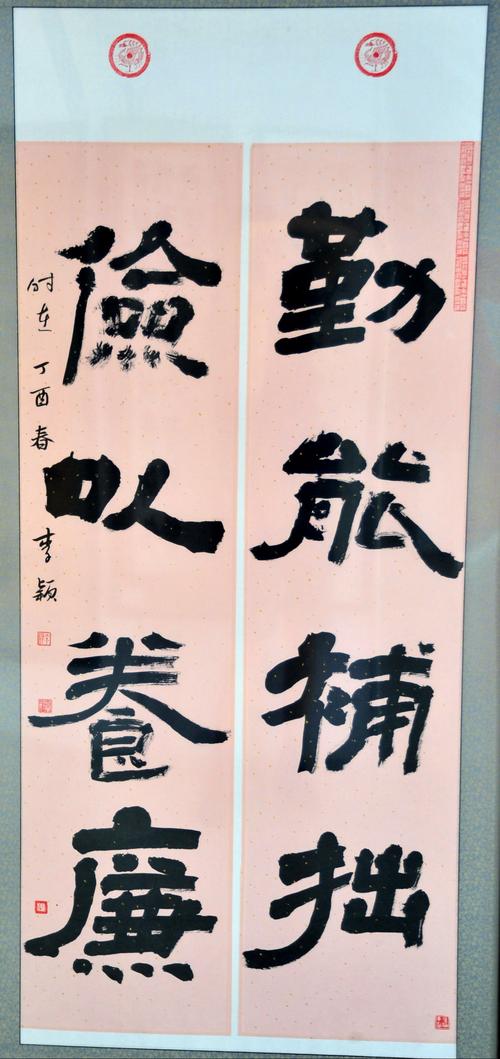 勤能補拙
儉以養廉
时在丁酉春 李颖